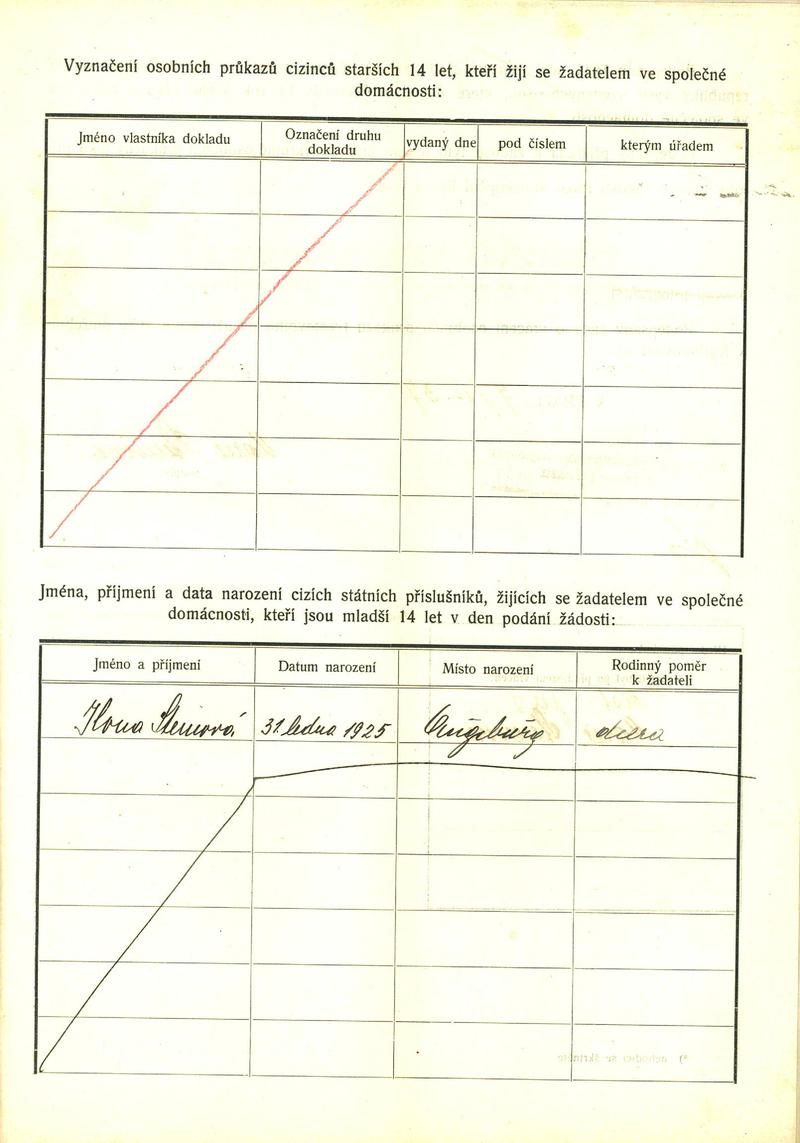 Vyznačení osobních průkazů cizinců starších 14 let, kteří žijí se žadatelem ve společné
domácnosti:
Jméno vlastníka dokladu
Označení druhu
dokladu
vydaný dne
pod číslem
kterým úřadem
Jména, příjmení a data narození cizích státních příslušníků, žijících se žadatelem ve společné
domácnosti, kteří jsou mladší 14 let v den podání žádosti:
Jméno a příjmení
Datum narození
Místo narození
Rodinný poměr
k žadateli
Ilona Steinová
31. ledna 1925
Augsburg
dcera